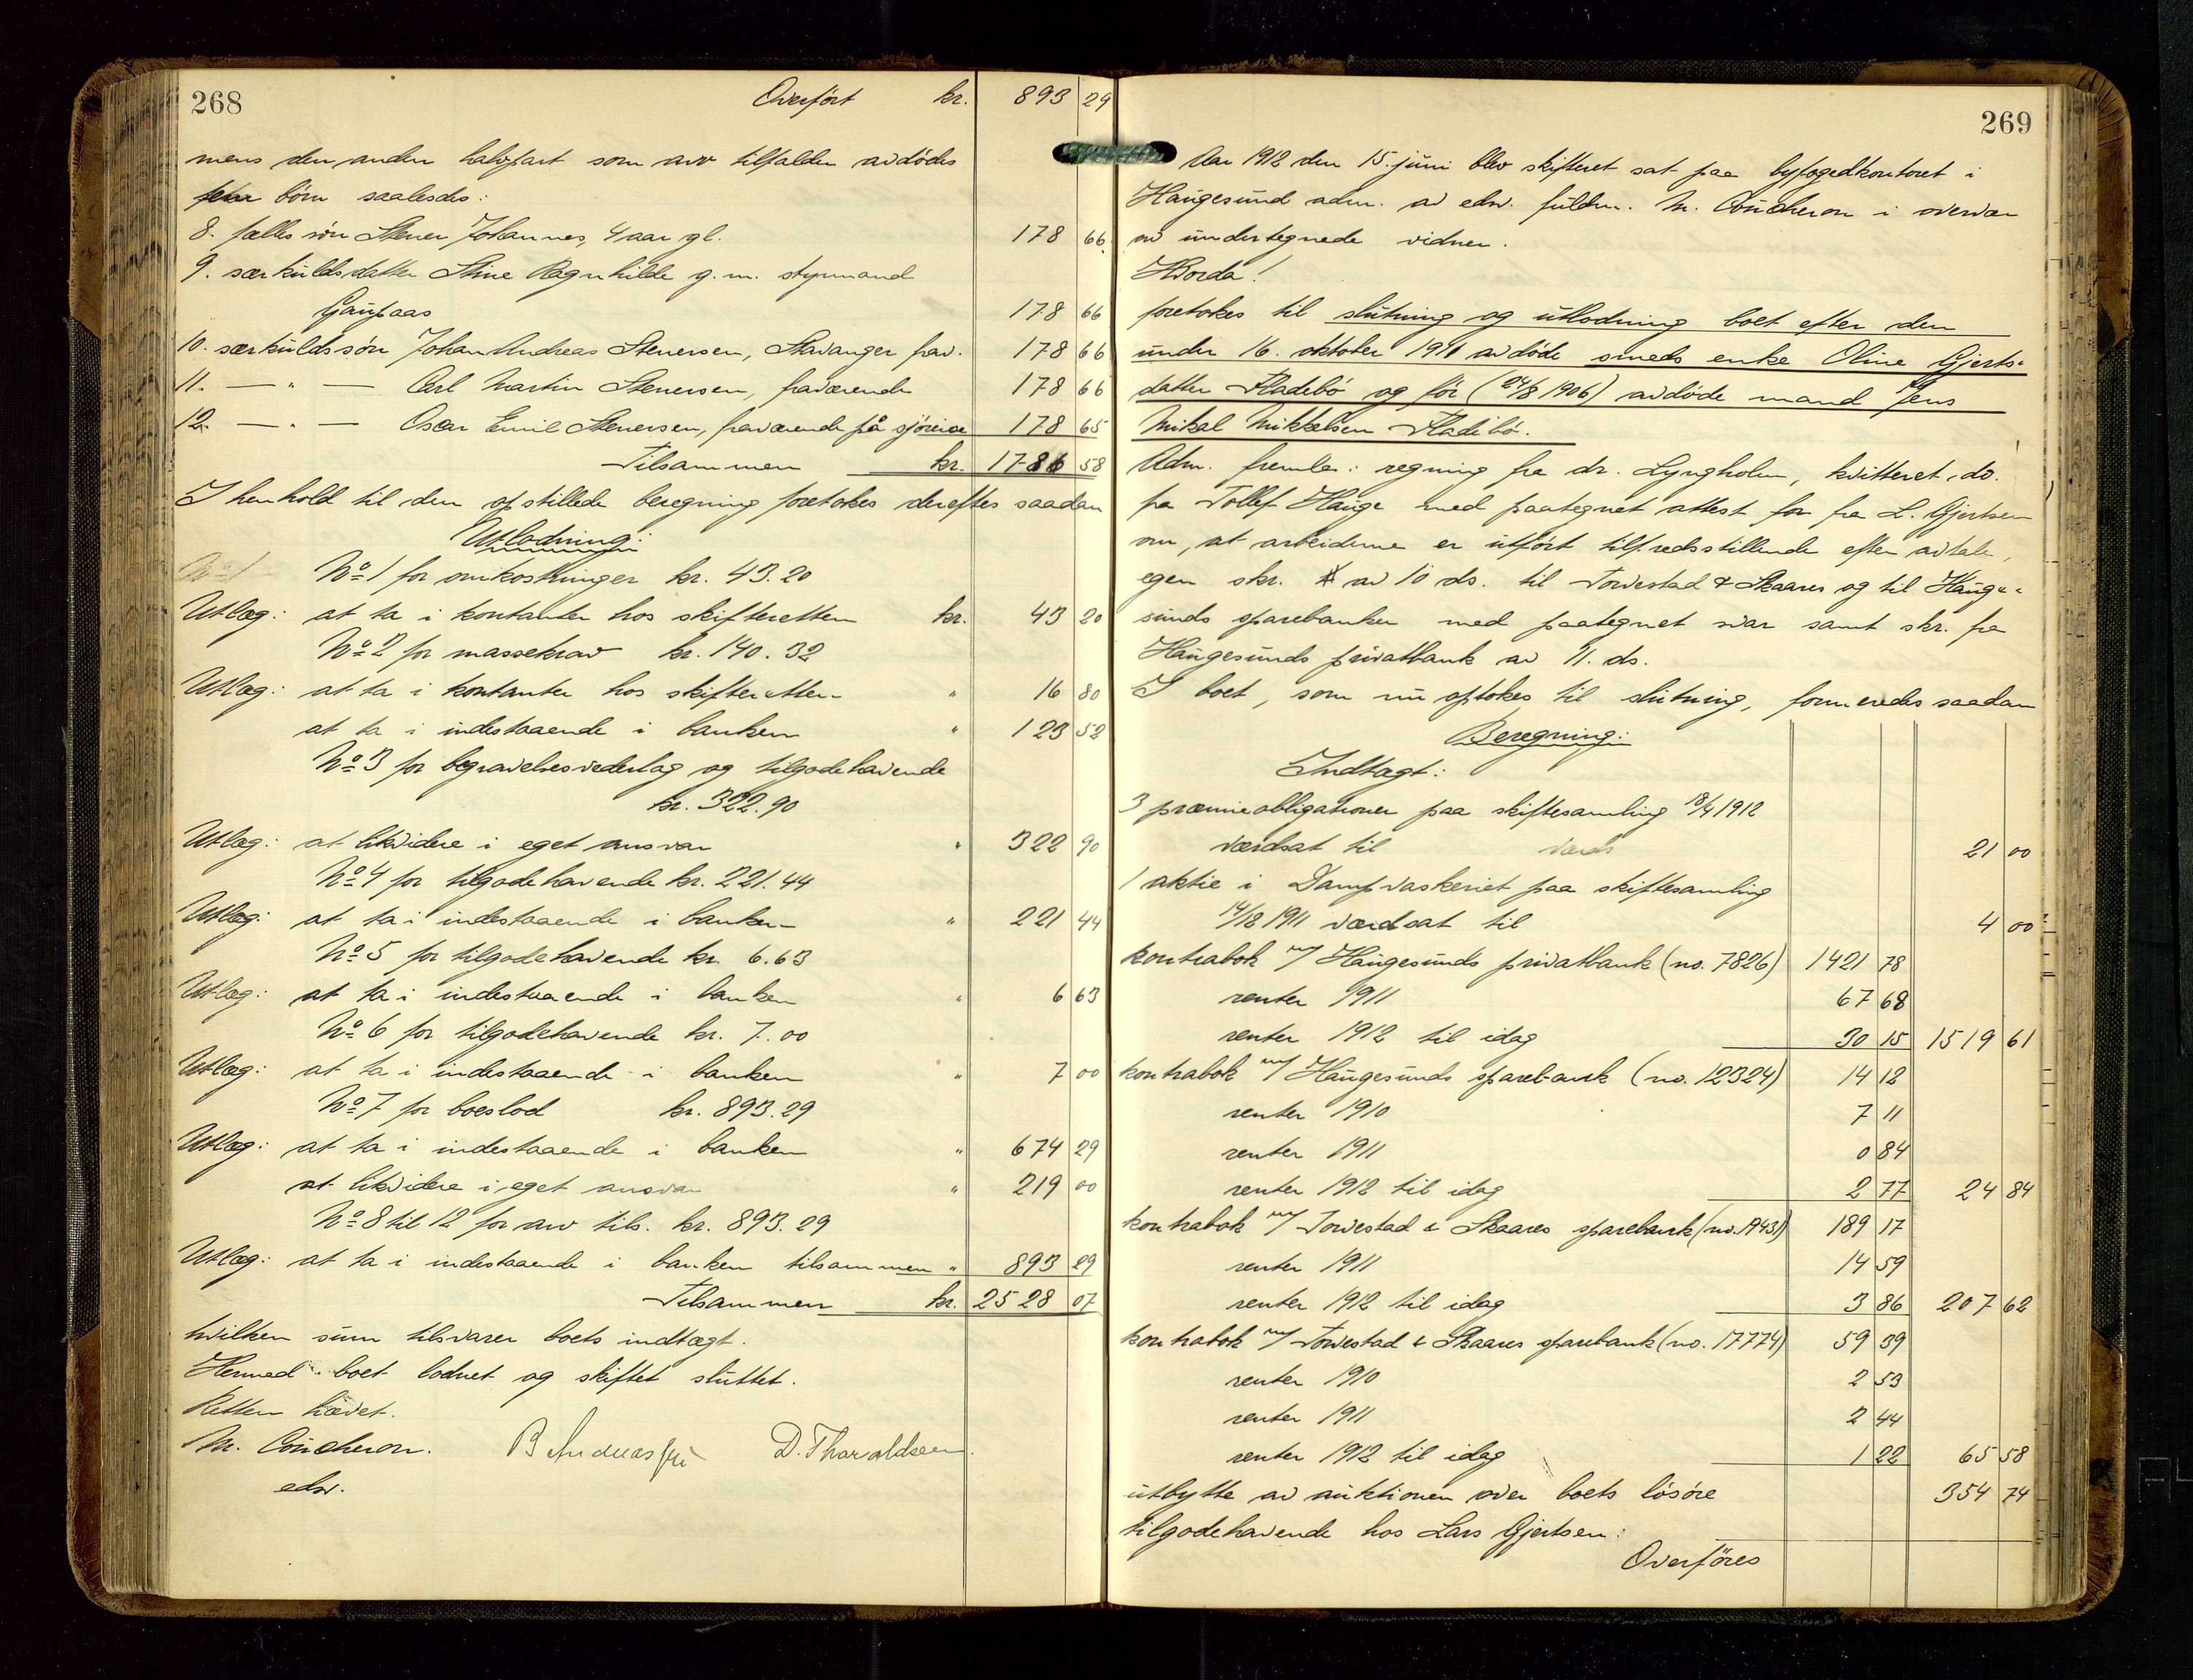 268
Overført kr. 893 29
mens den anden halvpart som arv tilfalder avdødes
fem børn saaledes:
8. fælles søn Stener Johannes, 4 aar gl. 178 66
9. særkuldsdatter Stine Ragnhilde g. m. styrmand
Gaupaas 178 66
10. særkuldssøn Johan Andreas Stenersen, Stavanger frav. 178 66
11. — " — Carl Martin Stenersen, fraværende 178 66
12. — " — Oscar Emil Stenersen, fraværende på sjøreise 178 65
Tilsammen kr. 1786 58
I henhold til den opstillede beregning foretokes derefter saadan
Utlodning:
No 1 for omkostninger kr. 43.20
Utlæg: at ta i kontanter hos skifteretten kr. 43 20
No 2 for massekrav kr. 140.32
Utlæg: at ta i kontanter hos skifteretten " 16 80
at ta i indestaaende i banken " 123 52
No 3 for begravelsesvederlag og tilgodehavende
kr. 322.90
Utlæg: at likvidere i eget ansvar " 322 90
No 4 for tilgodehavende kr. 221.44
Utlæg: at ta i indestaaende i banken " 221 44
No 5 for tilgodehavende kr. 6.63
Utlæg: at ta i indestaaende i banken " 6 63
No 6 for tilgodehavende kr. 7.00
Utlæg: at ta i indestaaende i banken " 7 00
No 7 for boeslod kr. 893.29
Utlæg: at ta i indestaaende i banken " 674 29
at likvidere i eget ansvar " 219 00
No 8 til 12 for arv tils. kr. 893.29
Utlæg: at ta i indestaaende i banken tilsammen " 893 29
Tilsammen kr. 2528 07
hvilken sum tilsvarer boets indtægt.
Hermed boet lodnet og skiftet sluttet.
Retten hævet.
M. Coucheron. B Andreassen D. Tharaldsen
edsv.
269
Aar 1912 den 15. juni blev skifteret sat paa byfogedkontoret i
Haugesund adm. av edsv. fuldm. M. Coucheron i overvær
av undertegnede vidner.
Hvorda!
foretokes til slutning og utlodning boet efter den
under 16. oktober 1910 avdøde smeds enke Oline Gjerts-
datter Fladebø og før (24/8 1906) avdøde mand Jens
Mikal Mikkelsen Fladebø.
Adm. fremla: regning fra dr. Lyngholm, kvitteret, do.
fra Tollef Hauge med paategnet attest fra L. Gjertsen
om, at arbeiderne er utført tilfredsstillende efter avtale,
egen skr. av 10 ds. til Torvestad & Skaares og til Hauge-
sunds sparebanker med paategnet svar samt skr. fra
Haugesunds privatbank av 11. ds.
I boet, som nu optokes til slutning, formeredes saadan
Beregning:
Indtægt:
3 præmieobligationer paa skiftesamling 18/4 1912
værdsat til 21 00
1 aktie i Dampvaskeriet paa skiftesamling
14/12 1911 værdsat til 4 00
kontrabok m/ Haugesunds privatbank (no. 7826) 1421 78
renter 1911 67 68
renter 1912 til idag 30 15 1519 61
kontrabok m/ Haugesunds sparebank (no. 12324) 14 12
renter 1910 7 11
renter 1911 0 84
renter 1912 til idag 2 77 24 84
kontrabok m/ Torvestad & Skaares sparebank (no. 19431) 189 17
renter 1911 14 59
renter 1912 til idag 3 86 207 62
kontrabok m/ Torvestad & Skaares sparebank (no. 17774) 59 39
renter 1910 2 53
renter 1911 2 44
renter 1912 til idag 1 22 65 58
utbytte av auktionen over boets løsøre 354 74
tilgodehavende hos Lars Gjertsen:
Overføres